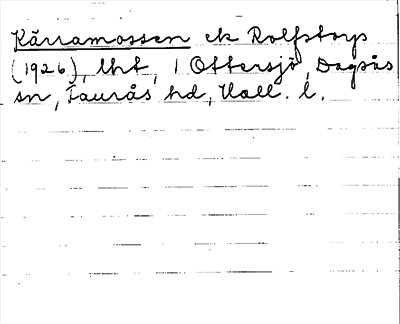 Kärramossen ek Rolfstorp
(1926), lht, 1 Ottersjö, Dagsås
sn, Faurås hd, Hall. l.